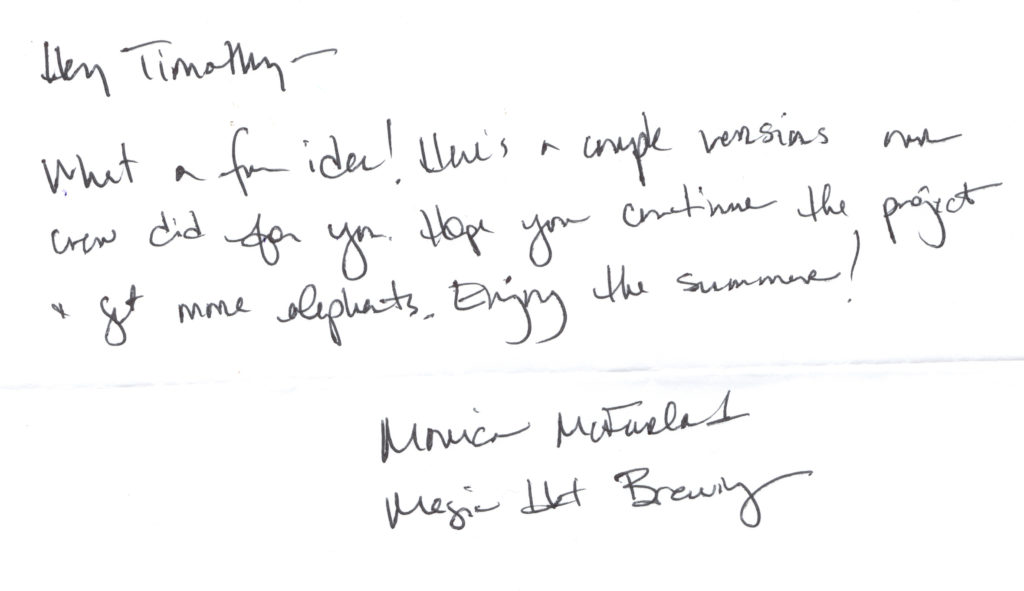 Hey Timothy —
What a fun idea! Here's a couple versions our
crew did for you. Hope you continue the project
+ get more elephants. Enjoy the summer!
Monica McFarland
Magic Hat Brewing